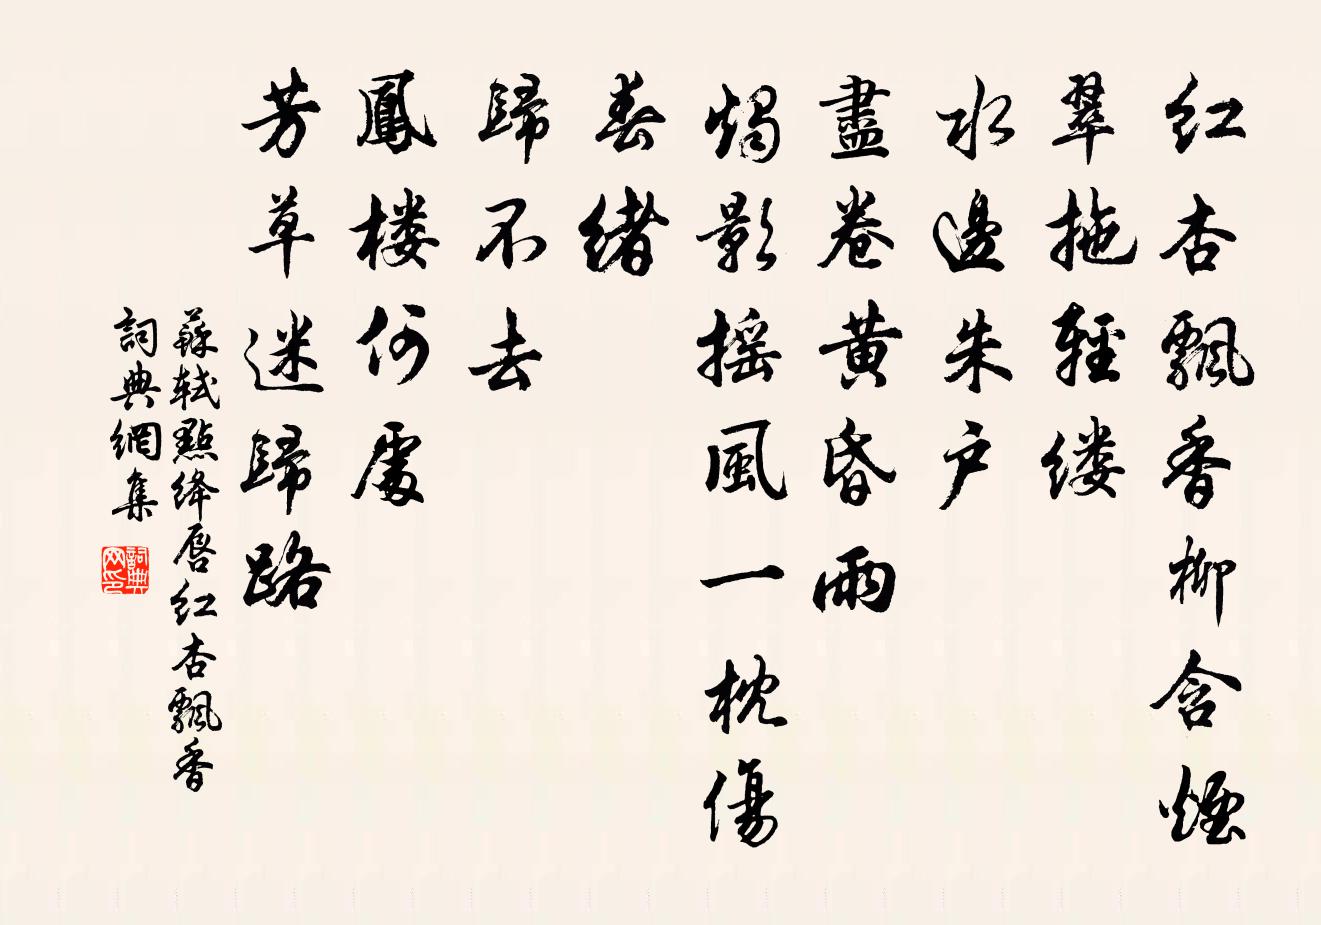 红杏飄香柳含煙
翠拖輕缕
水邊朱户
盡卷黄昏雨
燭影摇風一枕傷
春緒
歸不去
鳳楼何處
芳草迷歸路
蘇軾點絳唇红杏飄香
詞典網集
詞典网印